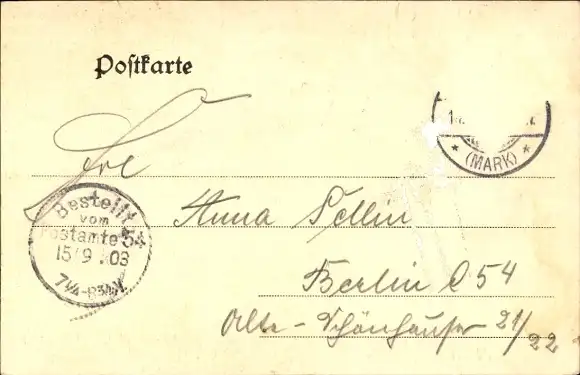 Postkarte
(MARK)
Frl
Bestellt
vom
Postamte 54
15/9 .03
7¼-8½V
Anna Pellin
Berlin C 54
Alte-Schönhauser 21/22